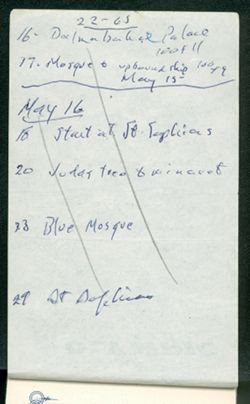 22-65
16- Dolmabahce Palace
100 f 11
17- Mosque & upbound ship 100
May 15
May 16
18 Start at St. Sophias
20 Judas tree & minaret
23 Blue Mosque
29 St Sophias